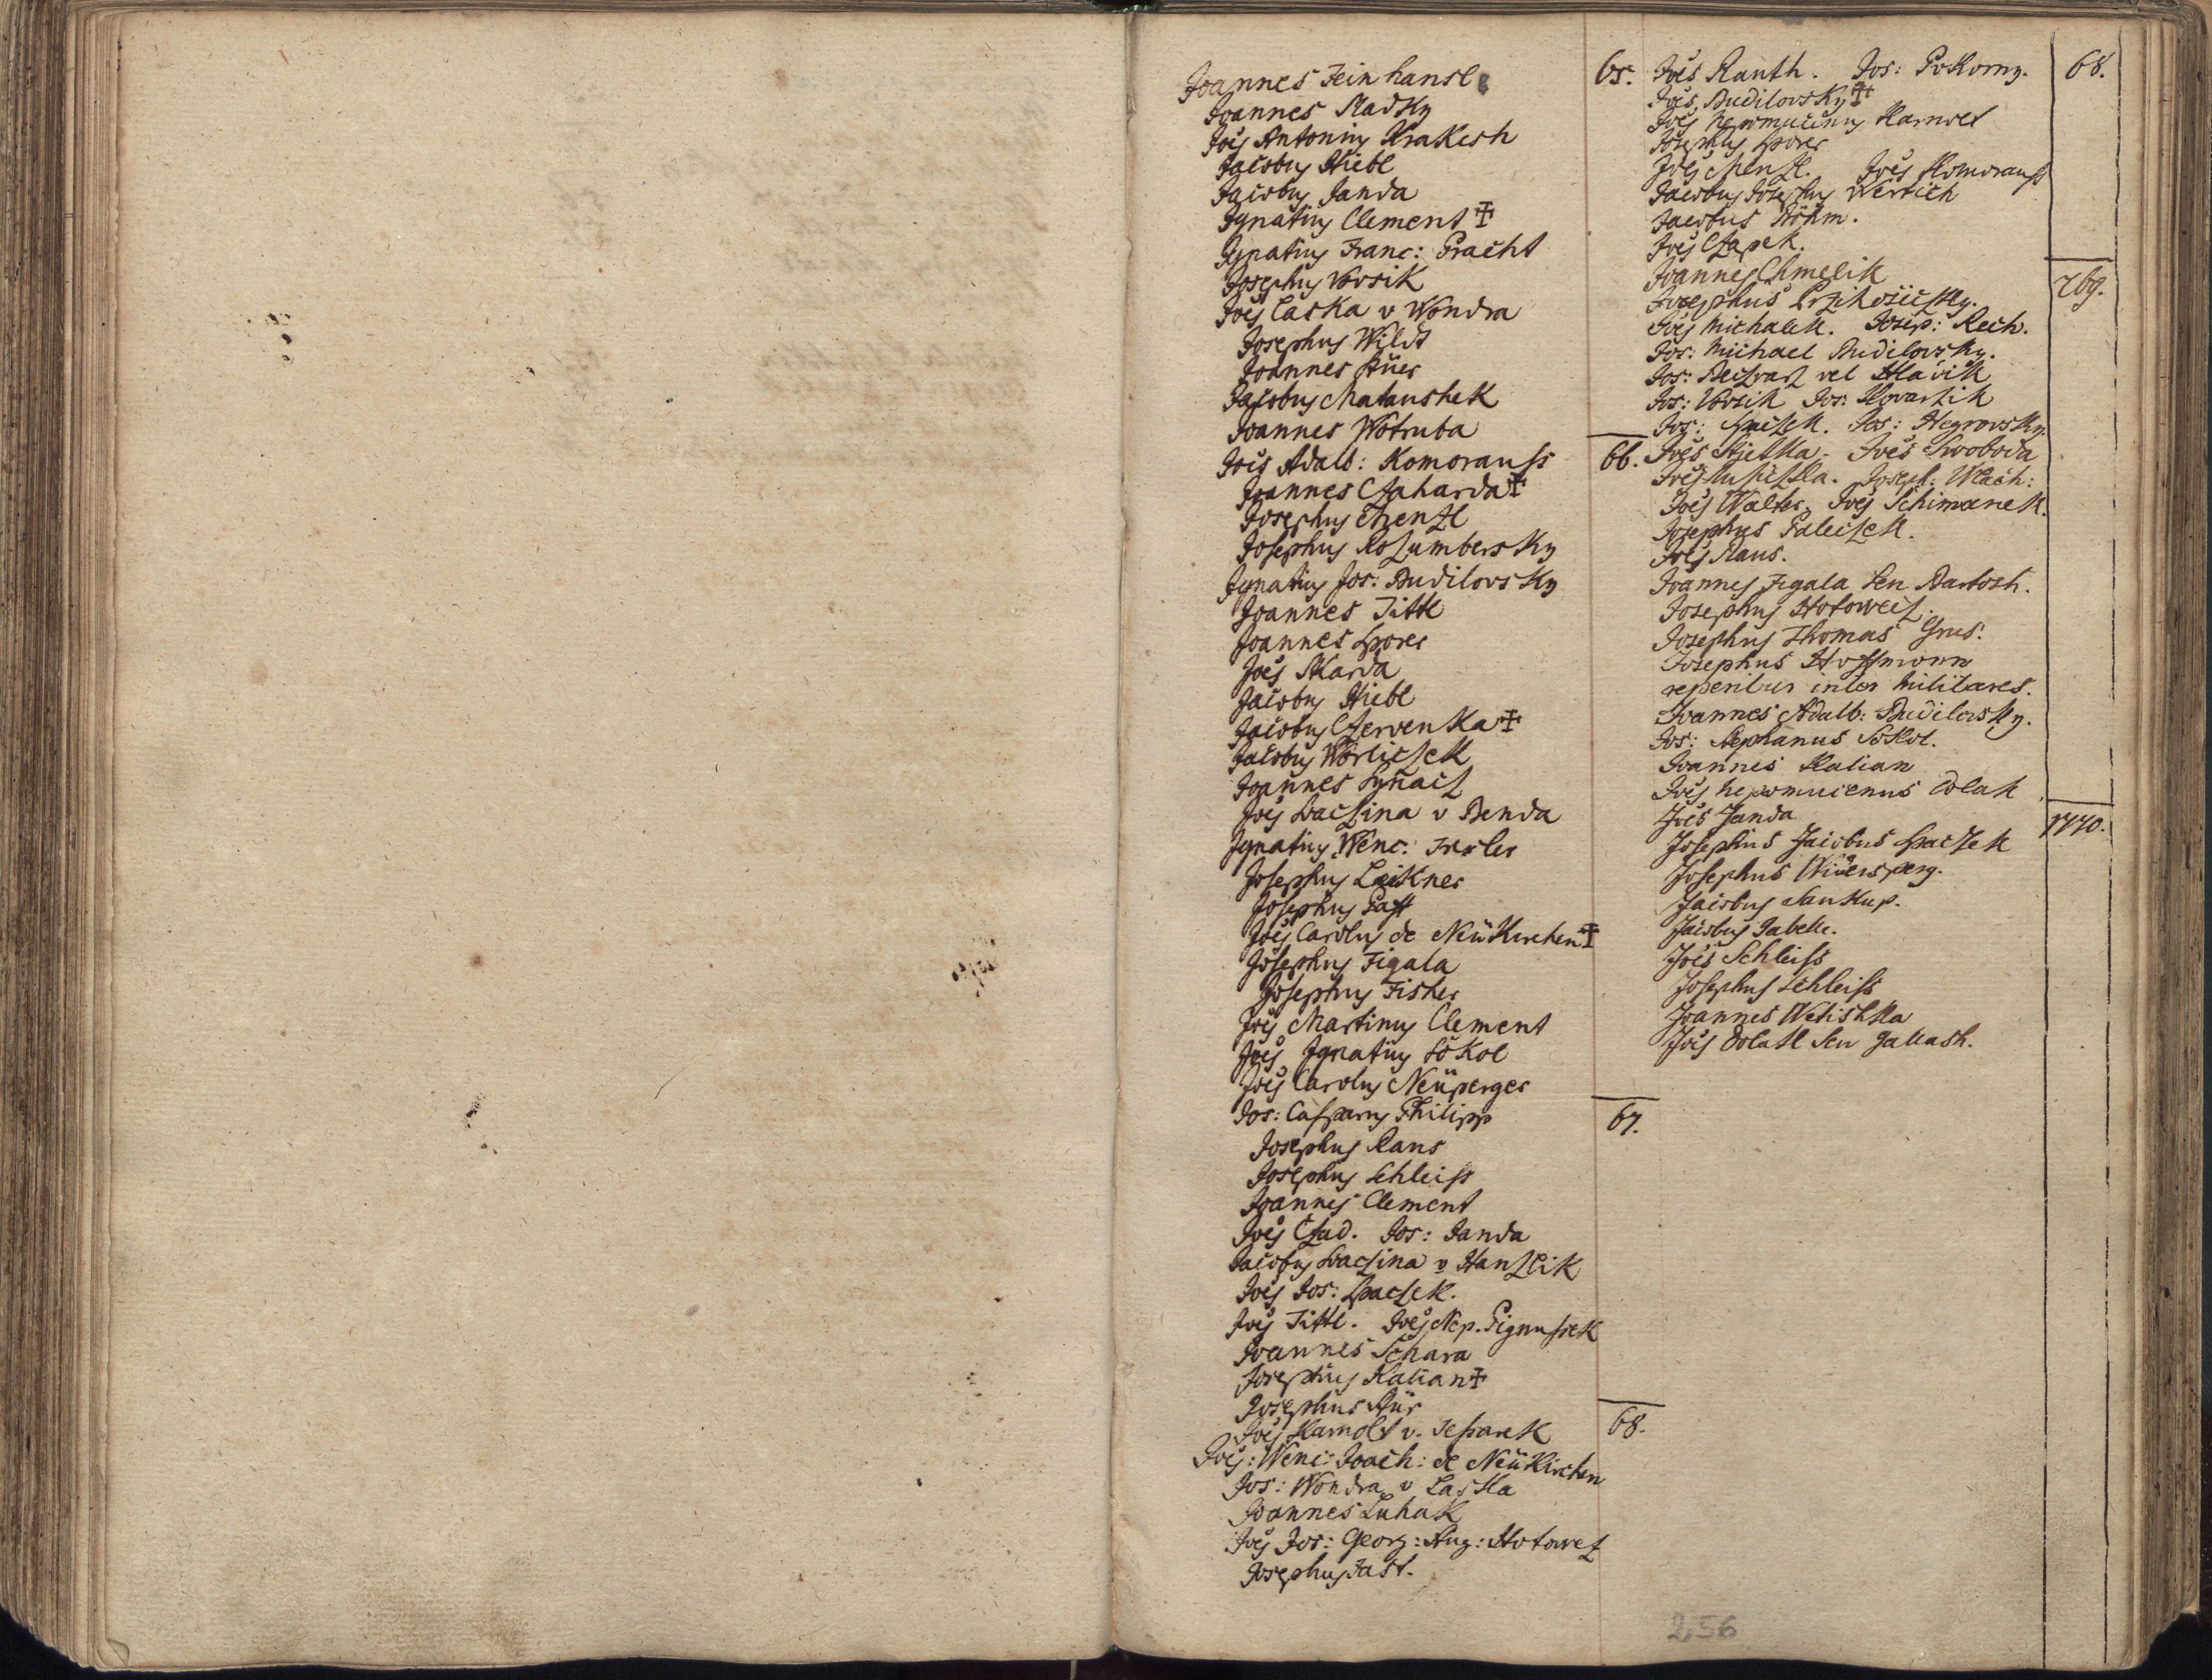 Joannes Feinhansl 65.
Joannes Sladky
Joës Antoniꝰ Krakesh
Jacobꝰ Hiebl
Jacobꝰ Janda
Ignatiꝰ Clement ✝
Ignatiꝰ Franc: Pracht
Josephꝰ Vosik
Joës Caska v Wondra
Josephus Wildt
Joannes Stüer
Jacobꝰ Mataushek
Joannes Wotruba
Jois Adalb: Komorauss 66.
Joannes Czaharda ✝
Josephꝰ Menzl
Josephꝰ Rozumbersky
Ignatiꝰ Jos: Budilovsky
Joannes Tittl
Joannes Sporer
Joës Skarda
Jacobꝰ Hiebl
Jacobꝰ Czervenka ✝
Jacobꝰ Worliczek
Joannes
Joës Svaczina v Benda
Ignatiꝰ Wenc:
Josephꝰ Leitkner
Josephꝰ
Joës Carolꝰ de Neükirchen ✝
Josephꝰ Figala
Josephꝰ Fisher
Joës Martinꝰ Clement
Joës Ignatiꝰ Sokol
Joës Carolꝰ Neüperger
Jos: Casparꝰ Philipp 67.
Josephꝰ Rans
Josephꝰ Schleiss
Joannes Clement
Joës Czad. Jos: Janda
Jacobꝰ Svaczina v Hanzlik
Joës Jos: Spaczek.
Joës Tittl. Joës Nep. Pignussek
Joannes Schara
Josephꝰ Kalian ✝
Josephus Stür 68.
Joës Harnolt v.
Joës: Wenc: Joach: de Neükirchen
Jos: Wondra v Laska
Joannes Luhak
Joës Jos: Georg: Aug: Hotowez
Josephꝰ Fast.
Joës Rauth. Jos: Pokorny. 68.
Joës Budilovsky ✝
Joës Nepomucenꝰ Harnolt
Josephꝰ Sporer
Joës Menzl. Joës Komorauss
Jacobꝰ Josephꝰ Wertich
Jacobus Böhm.
Joës Czapek.
Joannes Chmelik 769.
Josephus Przihoziczky.
Joës Michalek. Josep: Rech.
Jos: Michael Budilovsky.
Jos: vel Hlavik
Jos: Vosik Jos: Kovarzik
Jos: Spaczek. Jos: Hegrovsky.
Joës Stjetka. Joës Swoboda
Joës Joseph: Wlach:
Joës Walter. Joës Schimanek.
Josephus Paleczek.
Joës Rans.
Joannes Figala seu Bartosh.
Josephꝰ Hotowecz.
Josephꝰ Thomas Grus.
Josephus Hoffmonn
reperitur inter militares.
Joannes Adalb: Budilovsky.
Jos: Stephanus Sokol.
Joannes Kalian
Joës Nepomucenus Dolak
Joës Janda 1770.
Josephus Jacobus Spaczek
Josephus Widersperg.
Jacobꝰ Saukup.
Jacobꝰ Jabelk.
Joës Schleiss
Josephꝰ Schleiss
Joannes Wetishka
Joës Dolak seu Jakash.
256